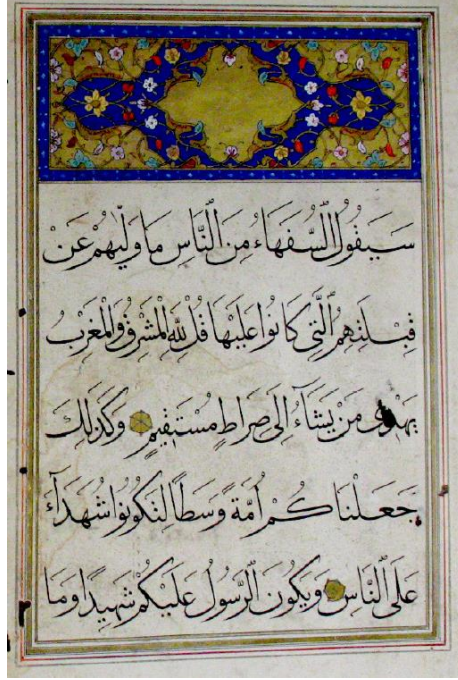 سَيَقُولُ السُّفَهَاءُ مِنَ النَّاسِ مَا وَلّٰيهُمْ عَنْ
قِبْلَتِهِمُ الَّتِي كَانُوا عَلَيْهَا قُلْ لِلّٰهِ الْمَشْرِقُ وَالْمَغْرِبُ
يَهْدِي مَنْ يَشَآءُ اِلٰى صِرَاطٍ مُسْتَقِيمٍ وَكَذٰلِكَ
جَعَلْنَاكُمْ اُمَّةً وَسَطًا لِتَكُونُوا شُهَدَآءَ
عَلَى النَّاسِ وَيَكُونَ الرَّسُولُ عَلَيْكُمْ شَهِيدًا وَمَا